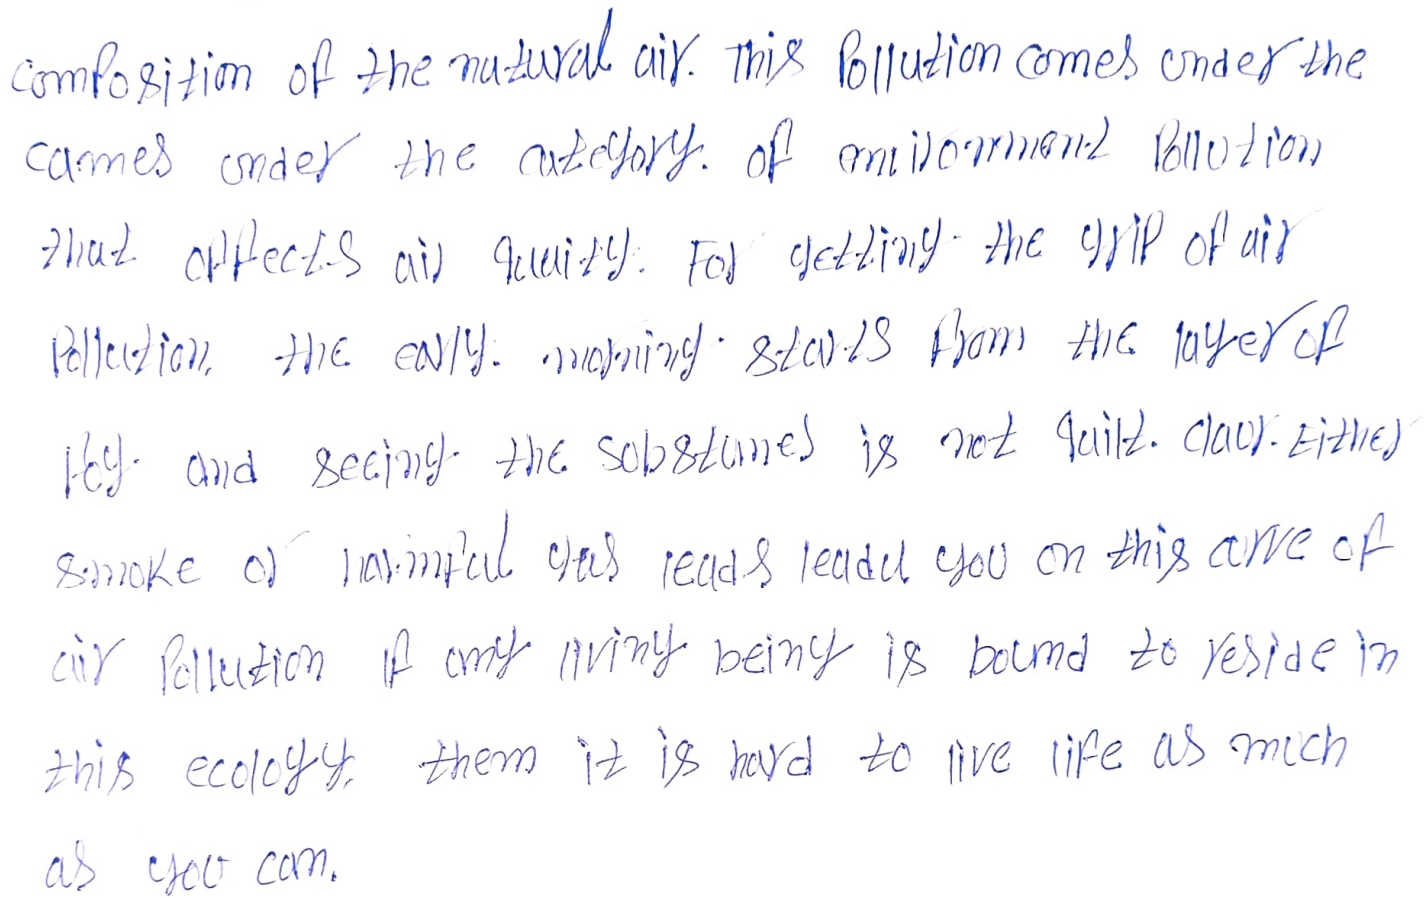 composition of the natural air. This Pollution comes under the
cames under the category. of environment Pollution
that affects air quaity. For getting the grip of air
Pollution, the early. morning starts from the layer of
fog and seeing the substunes is not quilt. claur. Either
smoke or harmful gas reads leadd you on this curve of
air Pollution if any living being is bound to reside in
this ecology, them it is hard to live life as much
as you can.